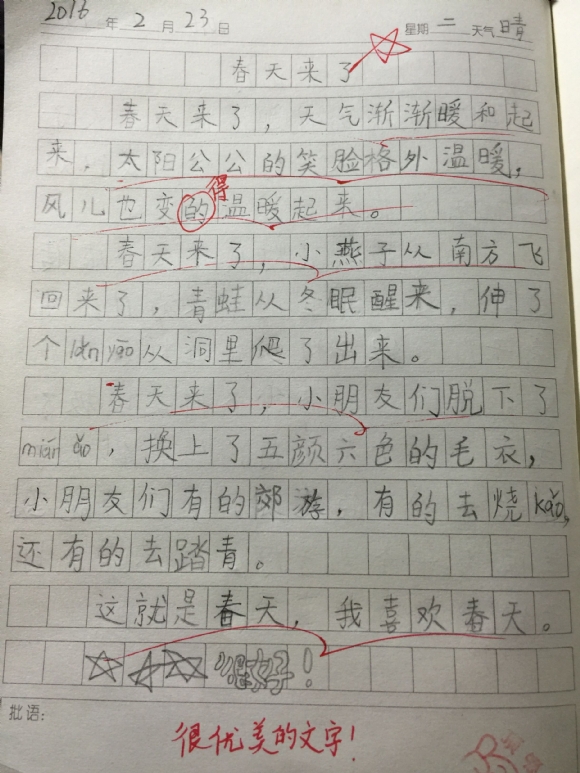 2016年2月23日 星期二 天气晴
春天来了
春天来了，天气渐渐暖和起
来，太阳公公的笑脸格外温暖，
得
风儿也变的温暖起来。
春天来了，小燕子从南方飞
回来了，青蛙从冬眠醒来，伸了
个lǎn yāo从洞里爬了出来。
春天来了，小朋友们脱下了
mián ǎo，换上了五颜六色的毛衣，
小朋友们有的郊游，有的去烧kǎo，
还有的去踏青。
这就是春天，我喜欢春天。
很好！
批语：
很优美的文字！